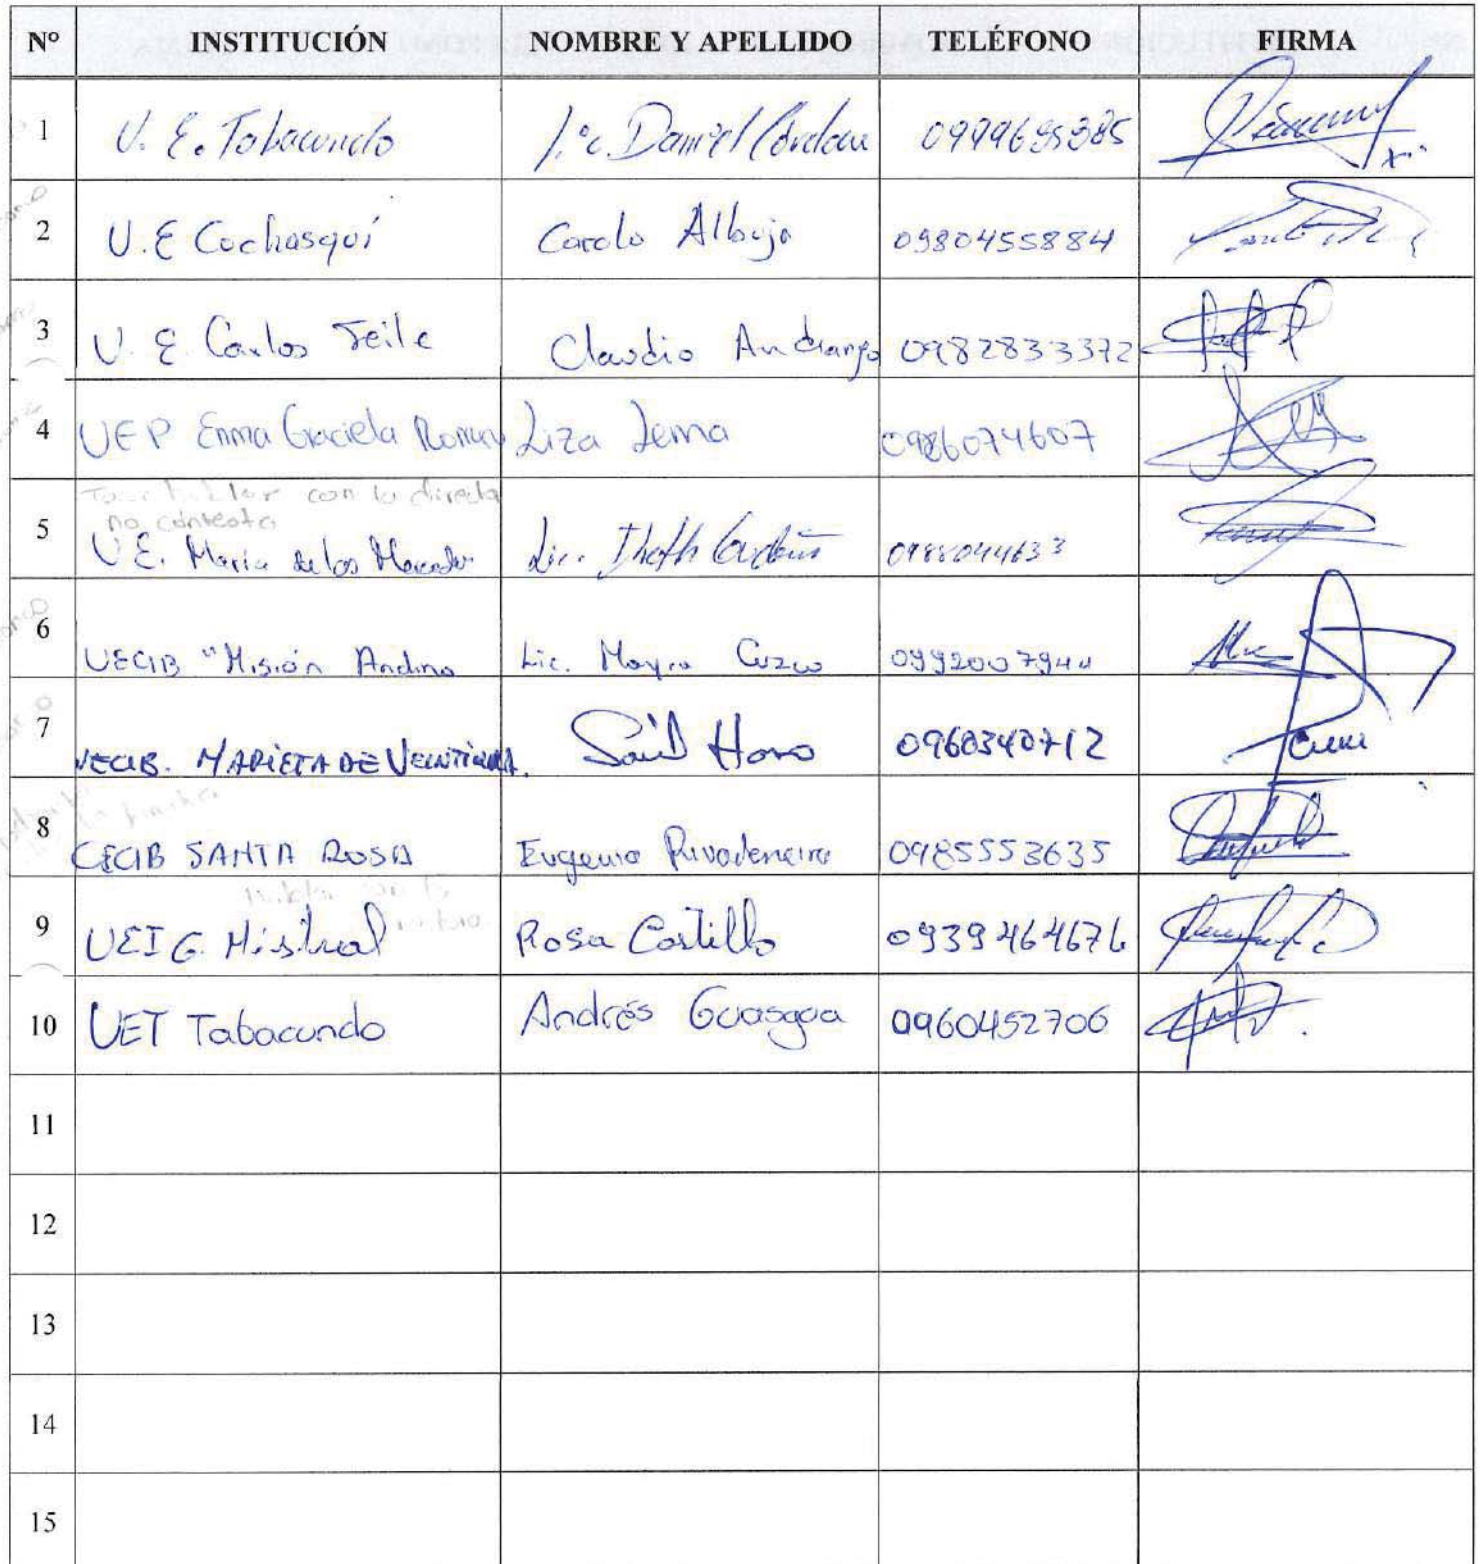 Nº INSTITUCIÓN NOMBRE Y APELLIDO TELÉFONO FIRMA
1 U. E. Tabacundo Daniel 0999695385
2 U.E Cochasquí Carola Albuja 0980455884
3 U. E. Carlos Feile Claudio Andrango 0982833372
4 UEP Emma Graciela Romero Liza Lema 0986074607
con la directa
no contesta
5 U.E. Maria de los Lic. 0988044633
6 UECIB "Misión Andina Lic. Mayra Cuzco 0992007944
7 UECIB. MARIETA DE VEINTIMILLA. Saúl Haro 0960340712
8 CECIB SANTA ROSA Eugenio Rivadeneira 0985553635
9 UEI G. Mistral Rosa Castillo 0939464676
10 UET Tabacundo Andrés Guasgua 0960452706
11
12
13
14
15